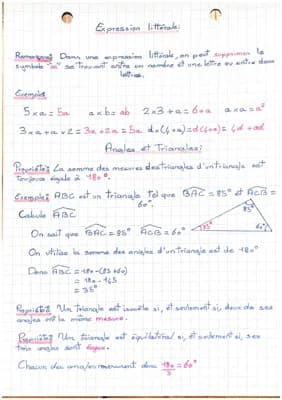 Expression littérale:
Remarque: Dans une expression littérale, on peut supprimer le
symbole "x" se trouvant entre un nombre et une lettre ou entre deux
lettres.
Exemples
5 x a = 5a a x b = ab 2 x 3 + a = 6 + a a x a = a²
3 x a + a x 2 = 3a + 2a = 5a d x (4 + a) = d(4+a) = 4d + ad
Angles et Triangles:
Propriété: La somme des mesures des triangles d'un triangle est
toujours égale à 180°.
Exemple: ABC est un triangle tel que BAC = 85° et ACB =
60°.
Calcule ABC
On sait que BAC = 85° ACB = 60°
85°
35°
60°
On utilise la somme des angles d'un triangle est de 180°
Donc ABC = 180 - (85 + 60)
= 180 - 145
= 35°
Propriété: Un triangle est isocèle si, et seulement si, deux de ses
angles ont la même mesure.
Propriété: Un triangle est équilatéral si, et seulement si, ses
trois angles sont égaux.
Chacun des angles mesurent donc 180/3 = 60°